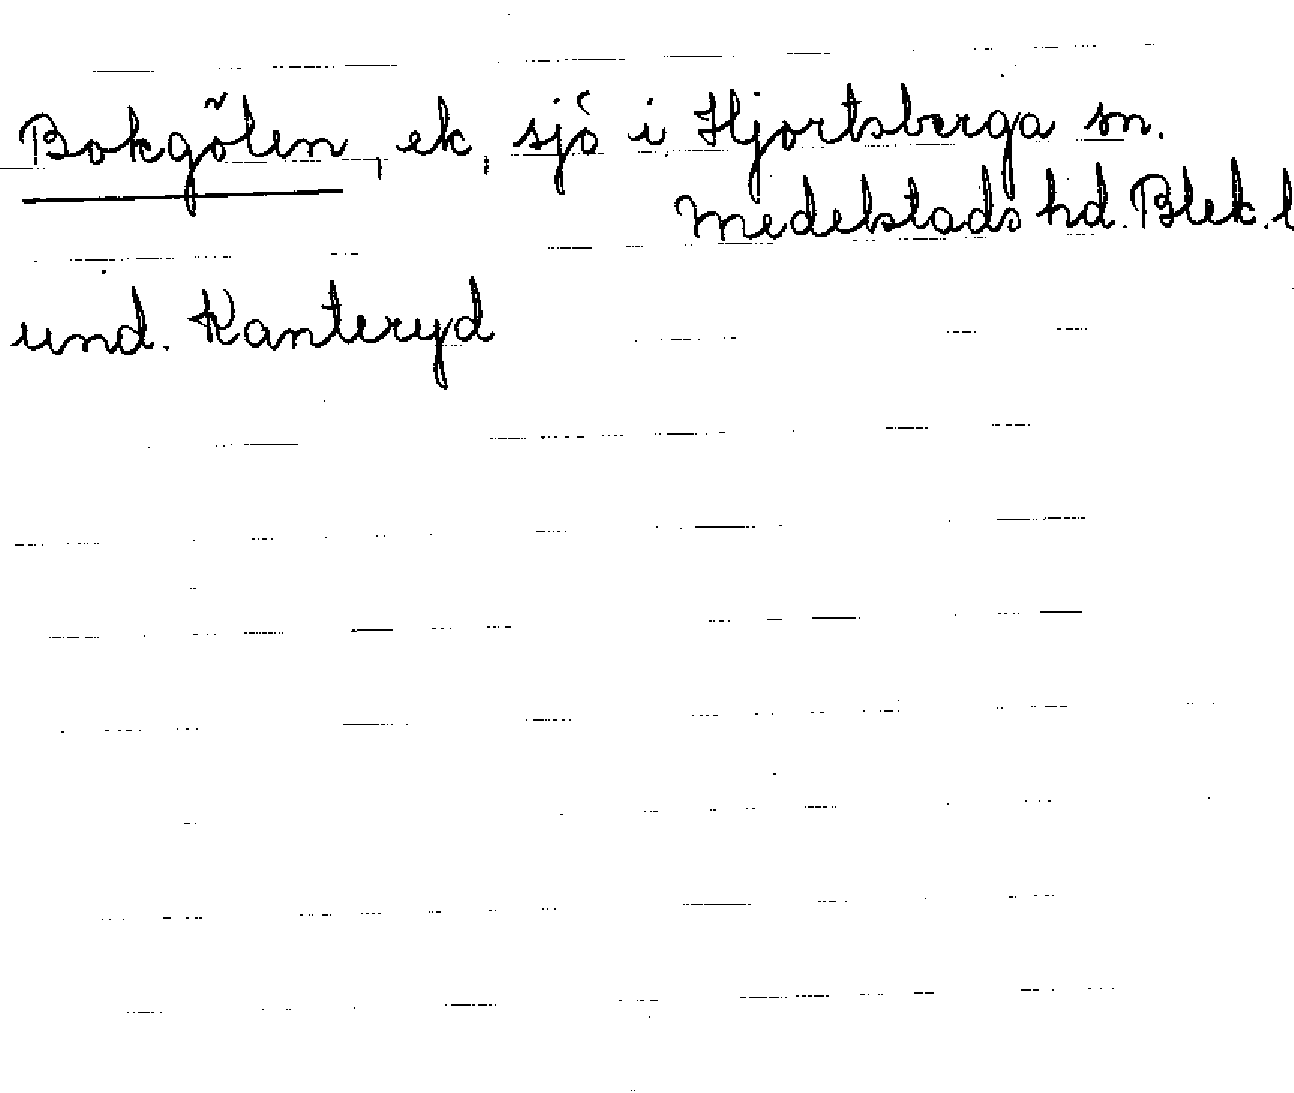 Bokgölen, ek, sjö i Hjortsberga sn.
Medelstads hd. Blek. l
und. Kanteryd